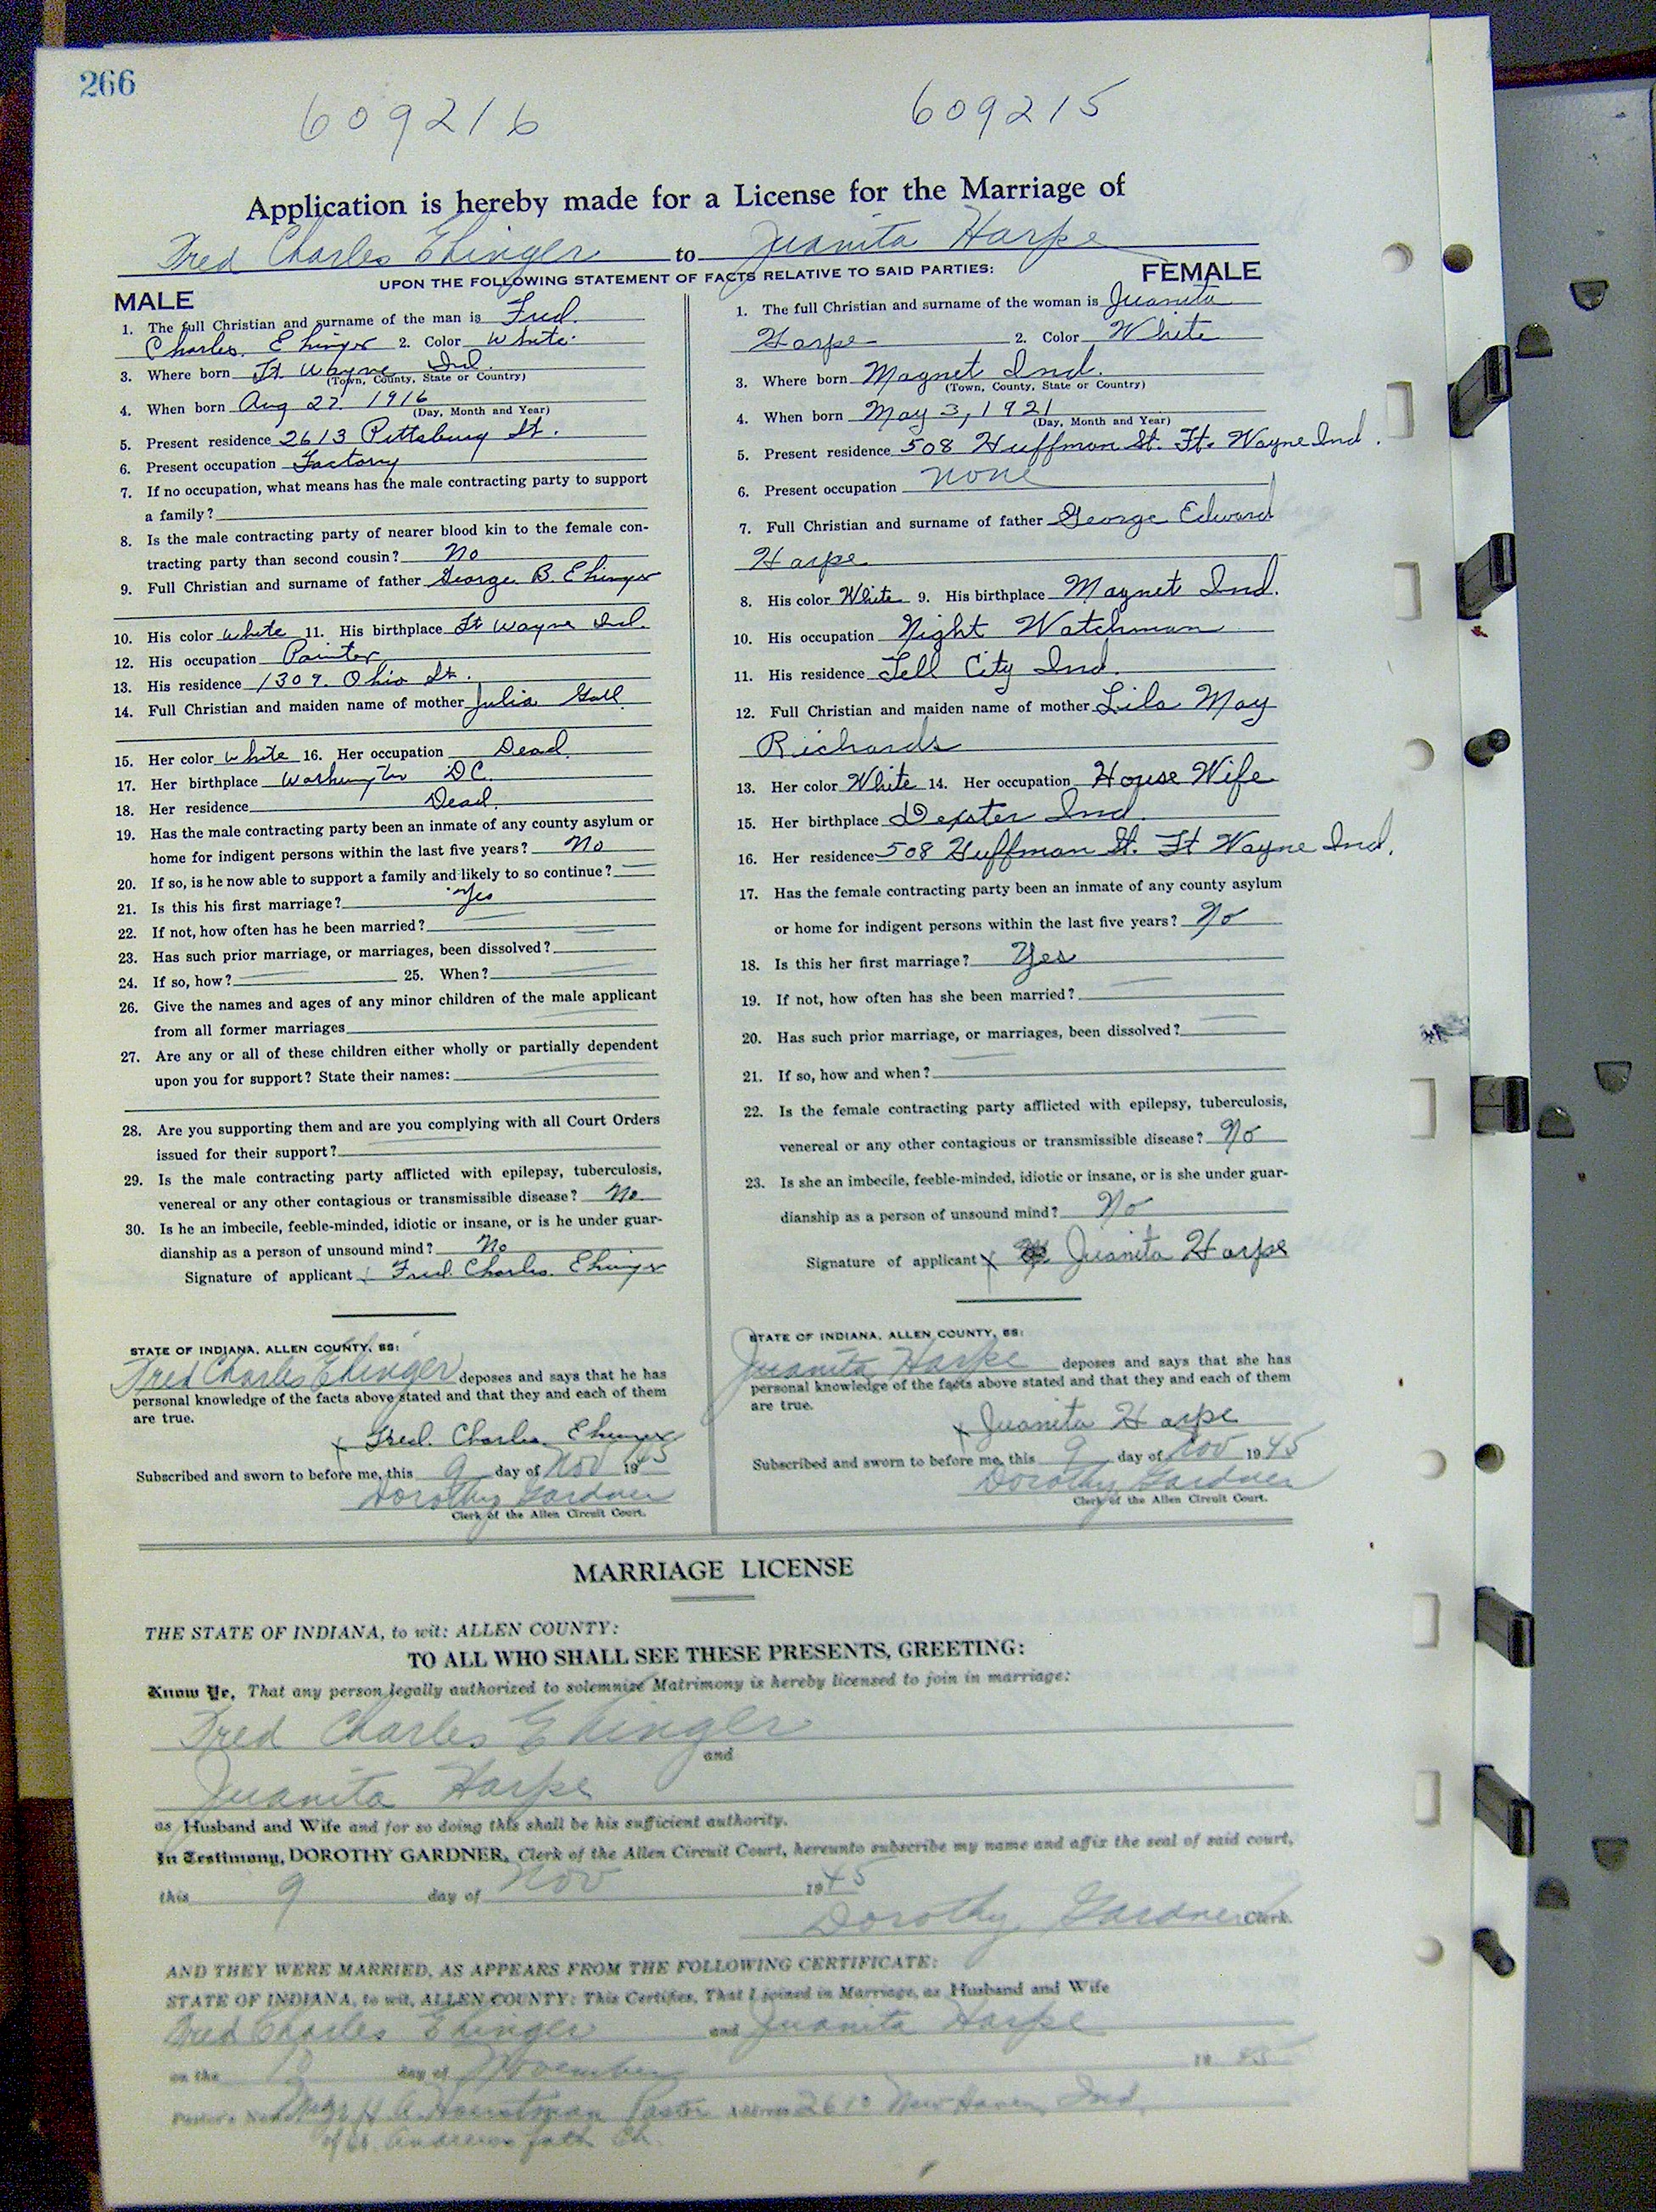 266
609216 609215
Application is hereby made for a License for the Marriage of
Fred Charles Ehinger to Juanita Harpe
UPON THE FOLLOWING STATEMENT OF FACTS RELATIVE TO SAID PARTIES:
MALE
1. The full Christian and surname of the man is Fred
Charles Ehinger 2. Color White
3. Where born Ft Wayne Ind.
(Town, County, State or Country)
4. When born Aug 27 1916
(Day, Month and Year)
5. Present residence 2613 Pittsburg St.
6. Present occupation Factory
7. If no occupation, what means has the male contracting party to support
a family?
8. Is the male contracting party of nearer blood kin to the female con-
tracting party than second cousin? No
9. Full Christian and surname of father George B. Ehinger
10. His color White 11. His birthplace Ft Wayne Ind.
12. His occupation Painter
13. His residence 1309 Ohio St.
14. Full Christian and maiden name of mother Julia Gall
15. Her color White 16. Her occupation Dead
17. Her birthplace Washington DC.
18. Her residence Dead.
19. Has the male contracting party been an inmate of any county asylum or
home for indigent persons within the last five years? No
20. If so, is he now able to support a family and likely to so continue?
21. Is this his first marriage? Yes
22. If not, how often has he been married?
23. Has such prior marriage, or marriages, been dissolved?
24. If so, how? 25. When?
26. Give the names and ages of any minor children of the male applicant
from all former marriages
27. Are any or all of these children either wholly or partially dependent
upon you for support? State their names:
28. Are you supporting them and are you complying with all Court Orders
issued for their support?
29. Is the male contracting party afflicted with epilepsy, tuberculosis,
venereal or any other contagious or transmissible disease? No
30. Is he an imbecile, feeble-minded, idiotic or insane, or is he under guar-
dianship as a person of unsound mind? No
Signature of applicant x Fred Charles Ehinger
STATE OF INDIANA, ALLEN COUNTY, SS:
Fred Charles Ehinger deposes and says that he has
personal knowledge of the facts above stated and that they and each of them
are true.
x Fred Charles Ehinger
Subscribed and sworn to before me, this 9 day of Nov 1945
Dorothy Gardner
Clerk of the Allen Circuit Court.
FEMALE
1. The full Christian and surname of the woman is Juanita
Harpe 2. Color White
3. Where born Magnet Ind.
(Town, County, State or Country)
4. When born May 3, 1921
(Day, Month and Year)
5. Present residence 508 Huffman St. Ft. Wayne Ind.
6. Present occupation none
7. Full Christian and surname of father George Edward
Harpe
8. His color White 9. His birthplace Magnet Ind.
10. His occupation Night Watchman
11. His residence Tell City Ind.
12. Full Christian and maiden name of mother Lila May
Richards
13. Her color White 14. Her occupation House Wife
15. Her birthplace Dexter Ind.
16. Her residence 508 Huffman St. Ft Wayne Ind.
17. Has the female contracting party been an inmate of any county asylum
or home for indigent persons within the last five years? No
18. Is this her first marriage? Yes
19. If not, how often has she been married?
20. Has such prior marriage, or marriages, been dissolved?
21. If so, how and when?
22. Is the female contracting party afflicted with epilepsy, tuberculosis,
venereal or any other contagious or transmissible disease? No
23. Is she an imbecile, feeble-minded, idiotic or insane, or is she under guar-
dianship as a person of unsound mind? No
Signature of applicant x Juanita Harpe
STATE OF INDIANA, ALLEN COUNTY, SS:
Juanita Harpe deposes and says that she has
personal knowledge of the facts above stated and that they and each of them
are true.
x Juanita Harpe
Subscribed and sworn to before me, this 9 day of Nov 1945
Dorothy Gardner
Clerk of the Allen Circuit Court.
MARRIAGE LICENSE
THE STATE OF INDIANA, to wit: ALLEN COUNTY:
TO ALL WHO SHALL SEE THESE PRESENTS, GREETING:
Know Ye, That any person legally authorized to solemnize Matrimony is hereby licensed to join in marriage:
Fred Charles Ehinger
and
Juanita Harpe
as Husband and Wife and for so doing this shall be his sufficient authority.
In Testimony, DOROTHY GARDNER, Clerk of the Allen Circuit Court, hereunto subscribe my name and affix the seal of said court,
this 9 day of Nov 1945
Dorothy Gardner Clerk.
AND THEY WERE MARRIED, AS APPEARS FROM THE FOLLOWING CERTIFICATE:
STATE OF INDIANA, to wit, ALLEN COUNTY: This Certifies, That I joined in Marriage, as Husband and Wife
Fred Charles Ehinger and Juanita Harpe
on the day of November 19 45
Msgr H. A. Hoerstman Pastor Address 2610 New Haven, Ind.
of St. Andrews Cath Ch.